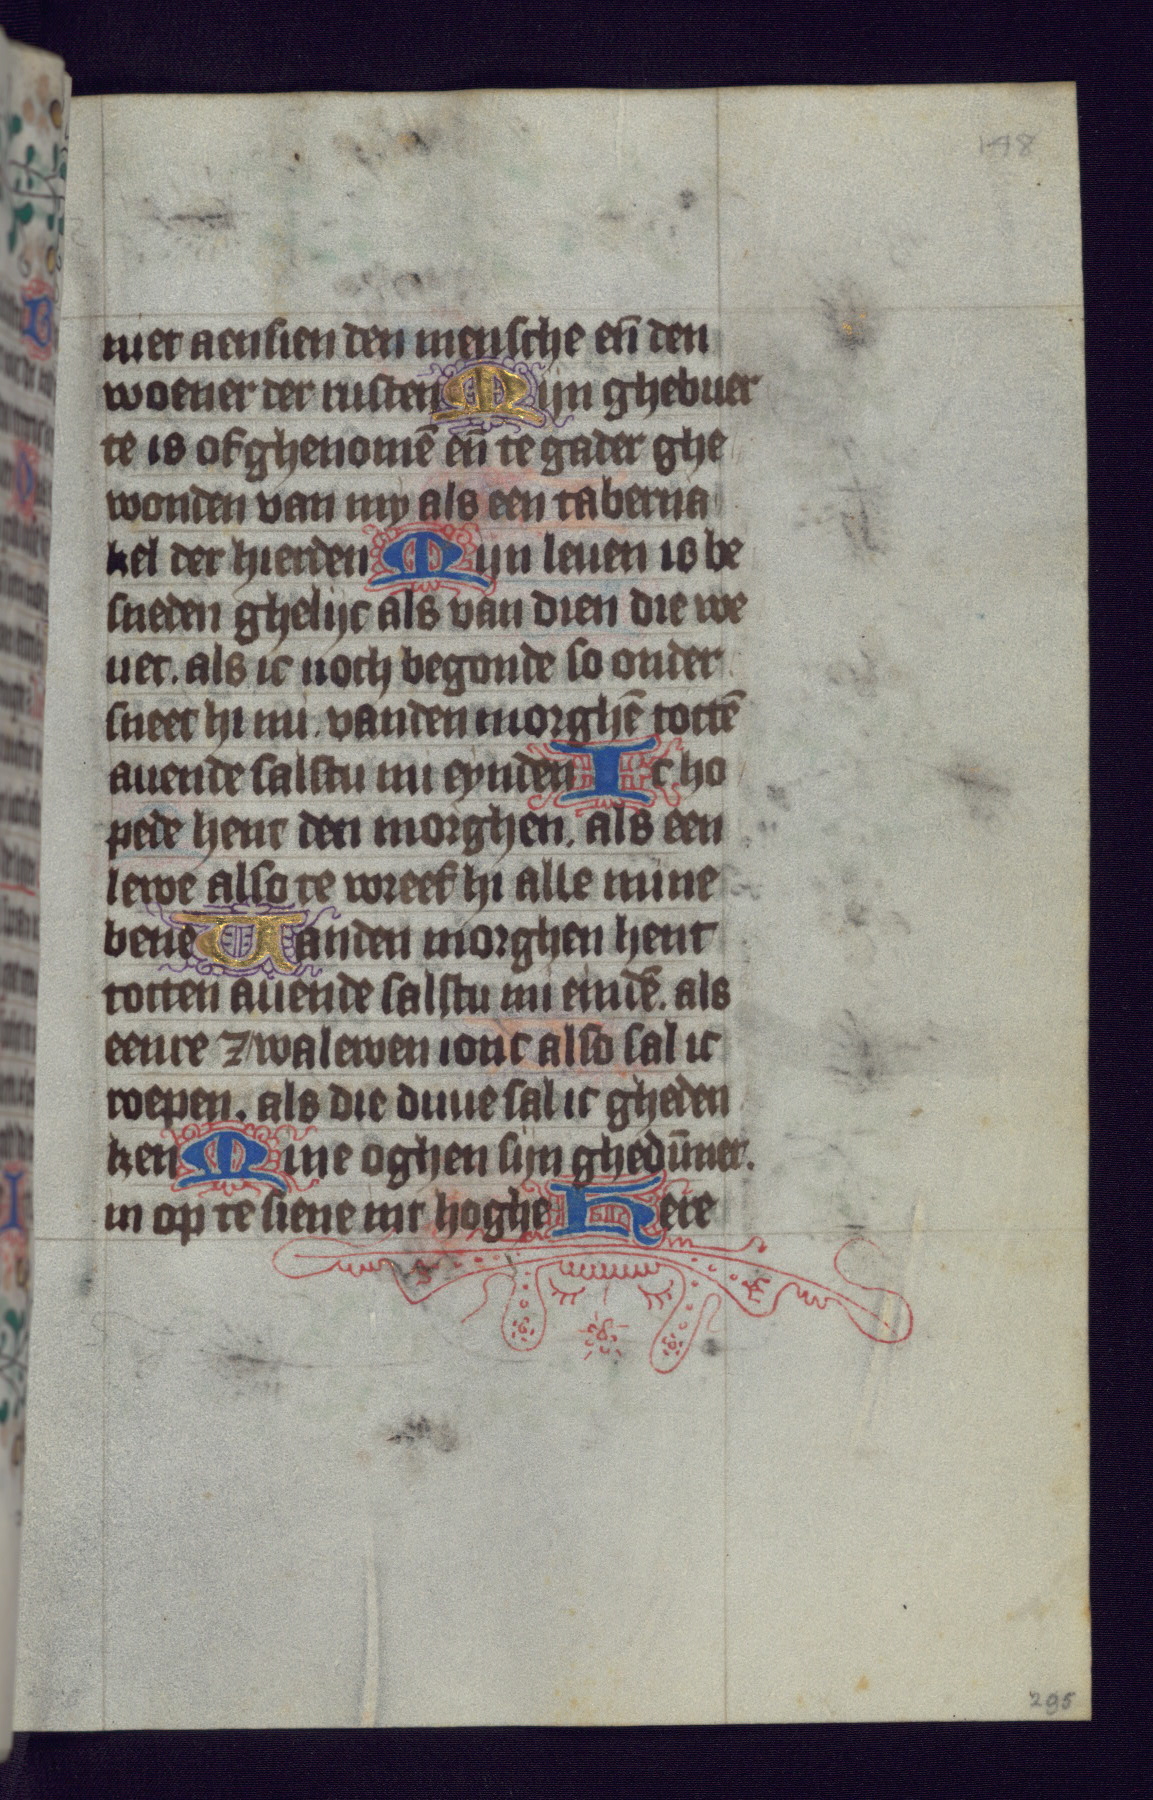 148
niet aensien den mensche en̄ den
woener der rusten Mijn ghebuer
te is of ghenomē en̄ te gader ghe
wonden van my als een taberna
kel der hierden Mijn leuen is be
sneden ghelijc als van dien die we
uet. als ic noch begonde so onder
sneet hi mi. vanden morghē tottē
auende salstu mi eynden Ic ho
pede hent den morghen. als een
lewe also te wreef hi alle mine
bene Uanden morghen hent
totten auende salstu mi eindē. als
eenre zwalewen ionc also sal ic
roepen. als die duue sal ic gheden
ken Mine oghen sijn ghedūner.
in op te siene int hoghe Here
295